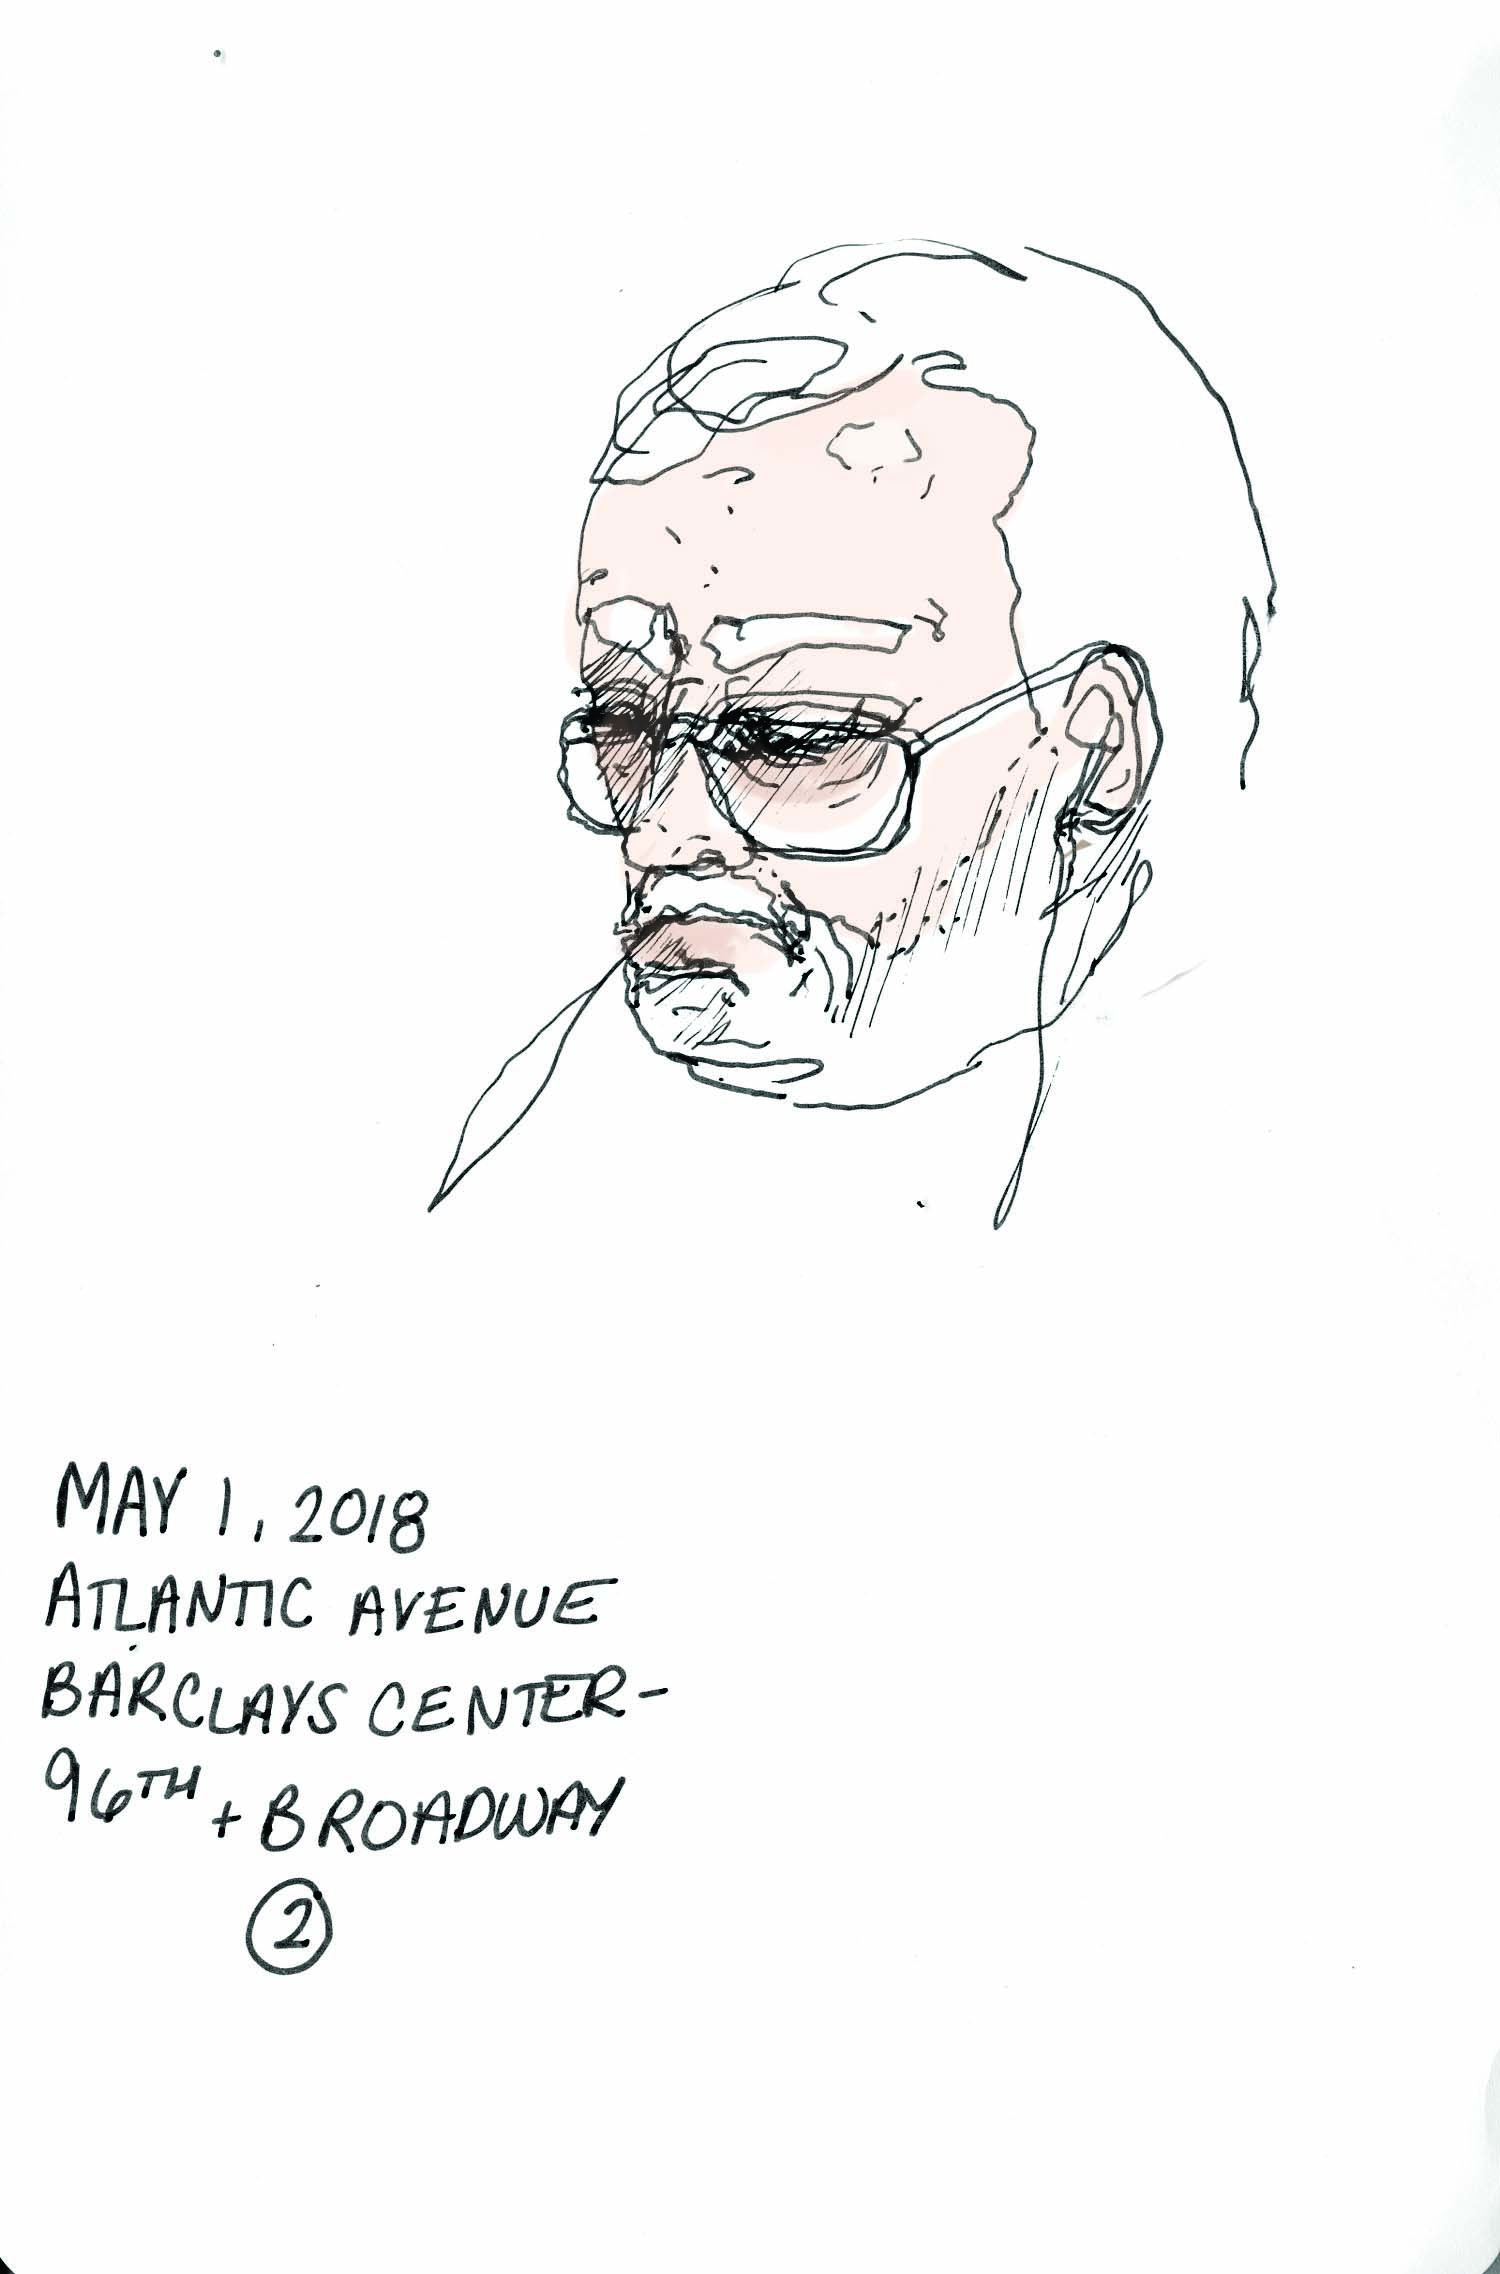 MAY 1, 2018
ATLANTIC AVENUE
BARCLAYS CENTER-
96TH + BROADWAY
2